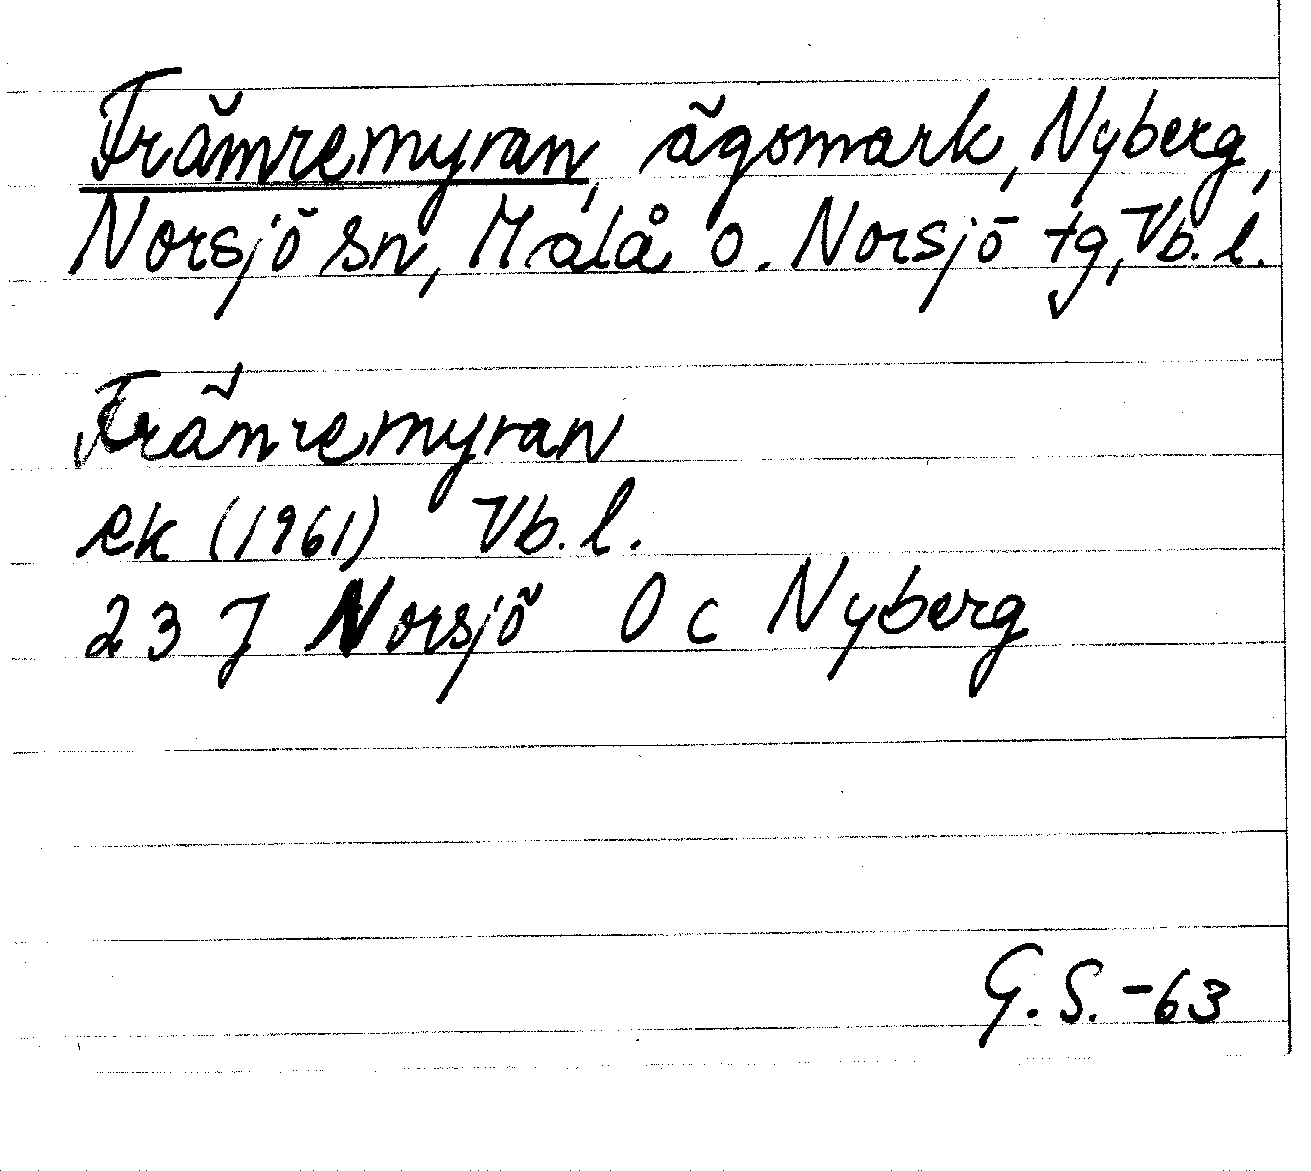 Främremyran, ägomark, Nyberg,
Norsjö sn, Malå o. Norsjö tg, Vb. l.
Främremyran
ek (1961) Vb. l.
23 J Norsjö 0 c Nyberg
G. S. -63